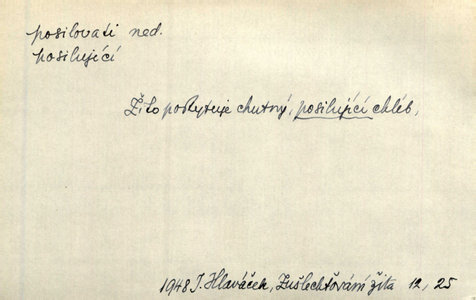 posilovati ned.
posilující
Žito poskytuje chutný, posilující chléb,
1948 J. Hlaváček, Zušlechťování žita 12, 25